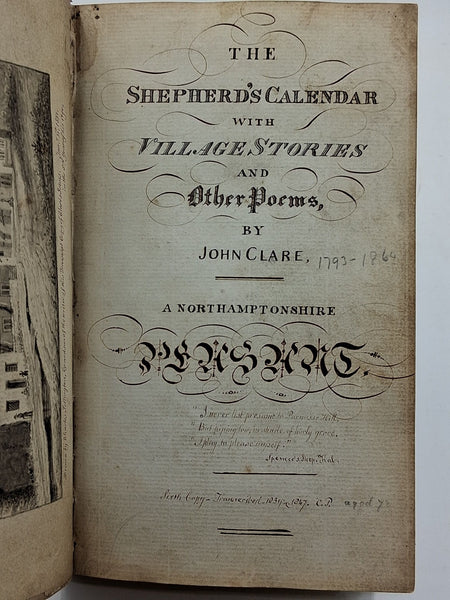 THE
SHEPHERD'S CALENDAR
WITH
VILLAGE STORIES
AND
Other Poems,
BY
JOHN CLARE, 1793-1864
A NORTHAMPTONSHIRE
PEASANT.
"I never list presume to Parnasse Hill,
"But piping low, in shade of lowly grove,
"I play to please myself."
Spencer's Shep. Kal.
Sixth Copy — Transcribed 1867. C.P. aged 7